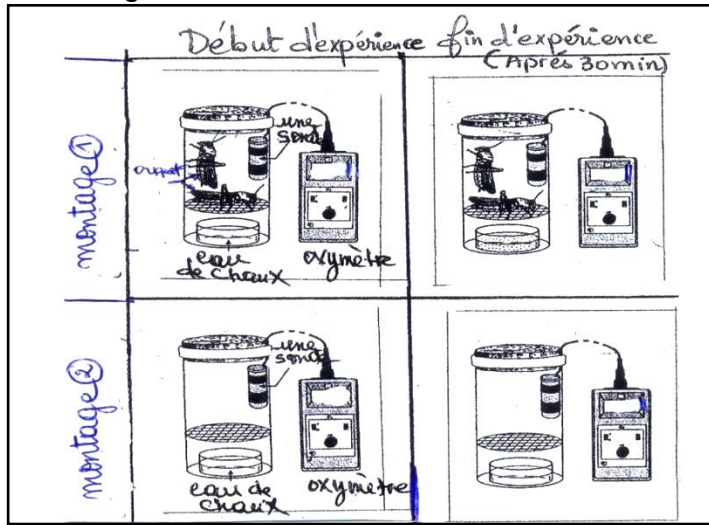 Début d'expérience
fin d'expérience
(Après 30min)
montage ①
une
sonde
criquet
eau
de chaux
oxymètre
montage ②
une
sonde
eau de
chaux
oxymètre